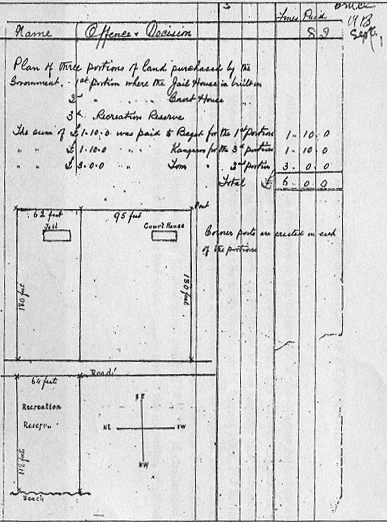 Fines Paid
1913
Sept
Name Offence & Decision £ S D
Plan of three portions of land purchased by the
Government. 1st portion where the Jail House is built on
2nd " " " Court House "
3rd. Recreation Reserve
The sum of £1.10.0 was paid to for the 1st portion 1 - 10. 0
" " £1.10.0 " " for the 2nd portion 1 - 10. 0
" " £3.0.0 Tom " 3rd portion 3. 0. 0
Total £ 6 0 0
Post
62 feet 95 feet
Jail Court House
Corner posts are erected on each
of the portions
180 feet 180 feet
Road
64 feet
Recreation
Reserve
SE
NE SW
NW
feet
Beach